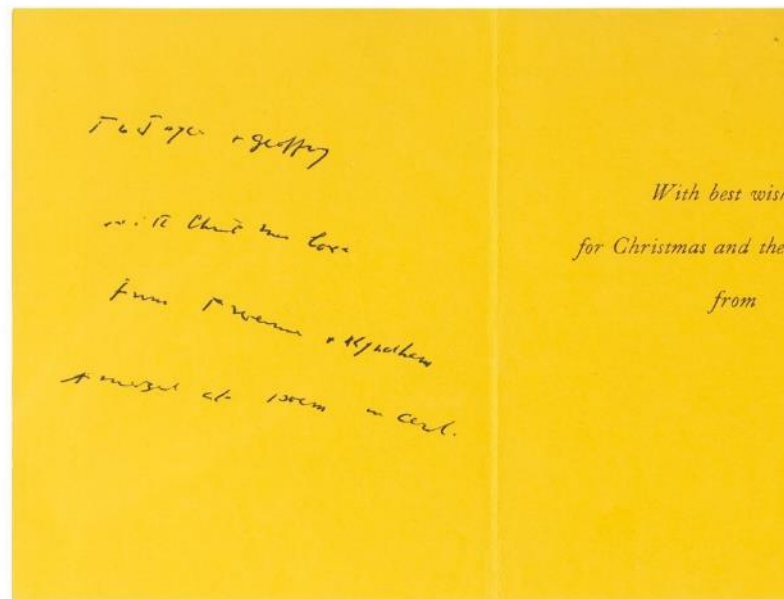 To Joyce + Geoffrey
with Christmas love
from + Wyndham
poem
With best wish
for Christmas and the
from